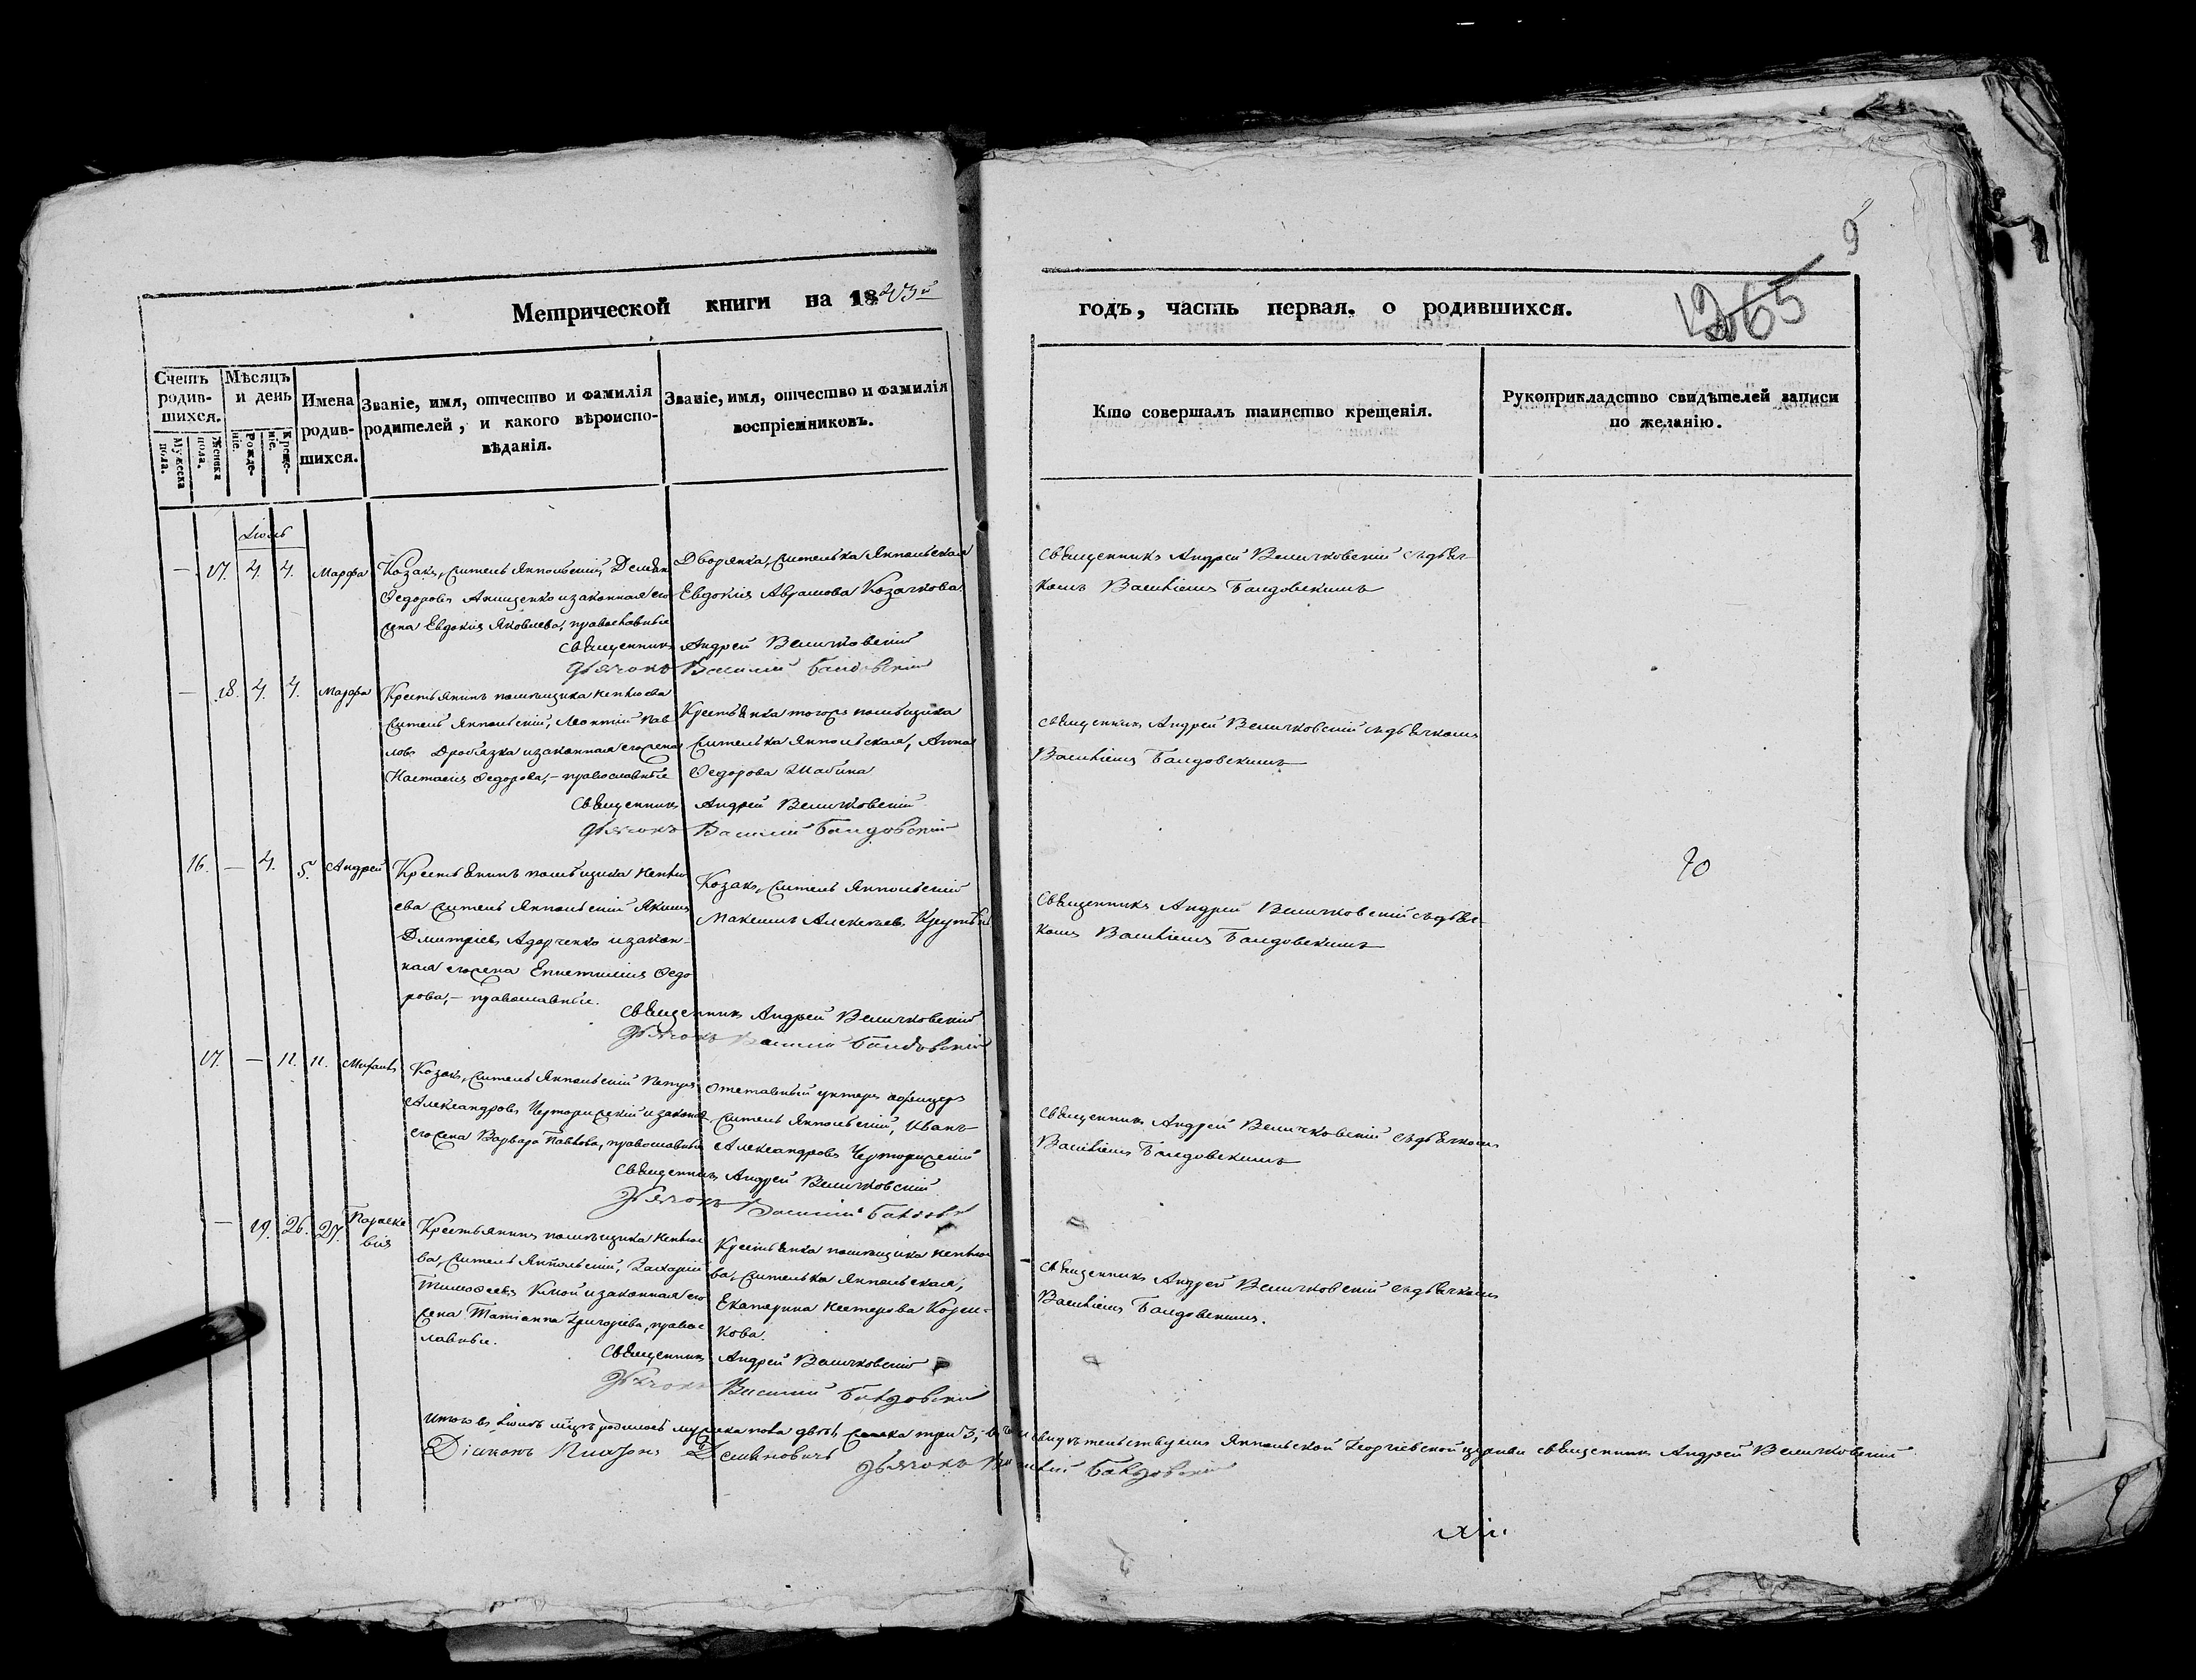 9
Метрической книги на 18
годъ, часть первая. о родившихся.
1265
Счетъ родив-шихся.
Мужеска пола.
Женска пола.
Мѣсяцъ и день
Рожде-ніе.
Креще-ніе.
Имена родив-шихся.
Званіе, имя, отчество и фамилія
родителей, и какого вѣроиспо-
вѣданія.
Званіе, имя, отчество и фамилія
воспріемниковъ.
Кто совершалъ таинство крещенія.
Рукоприкладство свидѣтелей записи
по желанію.
— 17. 4. 4. Марфа
Козакъ, житель Янпольскій, Демянъ
Федоровъ Анищенко и законная его
жена Евдокія Яковлева, православные
Дворянка, жителька Янпольская
Евдокія Аврамова Козачкова
Священникъ Андрей Величковскій съ дьяч-
комъ Василіемъ Бандовскимъ
Священникъ Андрей Величковскій
Дьячокъ Василій Бандовскій
— 18. 4. 4. Марфа
Крестьянинъ помѣщика Неплюева
житель Янпольскій, Леонтій Пав-
ловъ Дроблзка и законная его жена
Настасія Федорова, – православные
Крестьянка тогожъ помѣщика
жителька Янпольская, Анна
Федорова Шабина
Священникъ Андрей Величковскій съ дьячкомъ
Василіемъ Бандовскимъ
Священникъ Андрей Величковскій
Дьячокъ Василій Бандовскій
16. — 4. 5. Андрей
Крестьянинъ помѣщика Неплю-
ева житель Янпольскій Якимъ
Дмитріевъ и закон-
ная его жена Федо
рова, – православные.
Козакъ, житель Янпольскій
Максимъ Алексѣевъ
Священникъ Андрей Величковскій съ дьяч-
комъ Василіемъ Бандовскимъ
70
Священникъ Андрей Величковскій
Дьячокъ Василій Бандовскій
17. — 11. 11. Михаилъ
Козакъ, житель Янпольскій Петръ
Александровъ Черторижскій и законная
его жена Варвара Павлова, православные
Отставный унтеръ офицеръ
житель Янпольскій, Иванъ
Александровъ Черторижскій
Священникъ Андрей Величковскій съ дьячкомъ
Василіемъ Бандовскимъ
Священникъ Андрей Величковскій
Дьячокъ Василій
— 19. 26. 27. Параске
вія
Крестьянинъ помѣщика Неплюе
ва, житель Янпольскій, Захарій
Тимофеевъ и законная его
жена Татіанна Григоріева, правос
лавные.
Крестьянка помѣщика Неплюе
ва, жителька Янпольская,
Екатерина Нестерова
кова.
Священникъ Андрей Величковскій съ дьячкомъ
Василіемъ Бандовскимъ.
Священникъ Андрей Величковскій
Дьячокъ Василій Бандовскій
Итого въ родилось мужеска пола двое, женска три 3, – въ чемъ свидѣтельствуемъ Янпольской Георгіевской церкви священникъ Андрей Величковскій
Діаконъ Демяновичъ Дьячокъ Василій Бандовскій